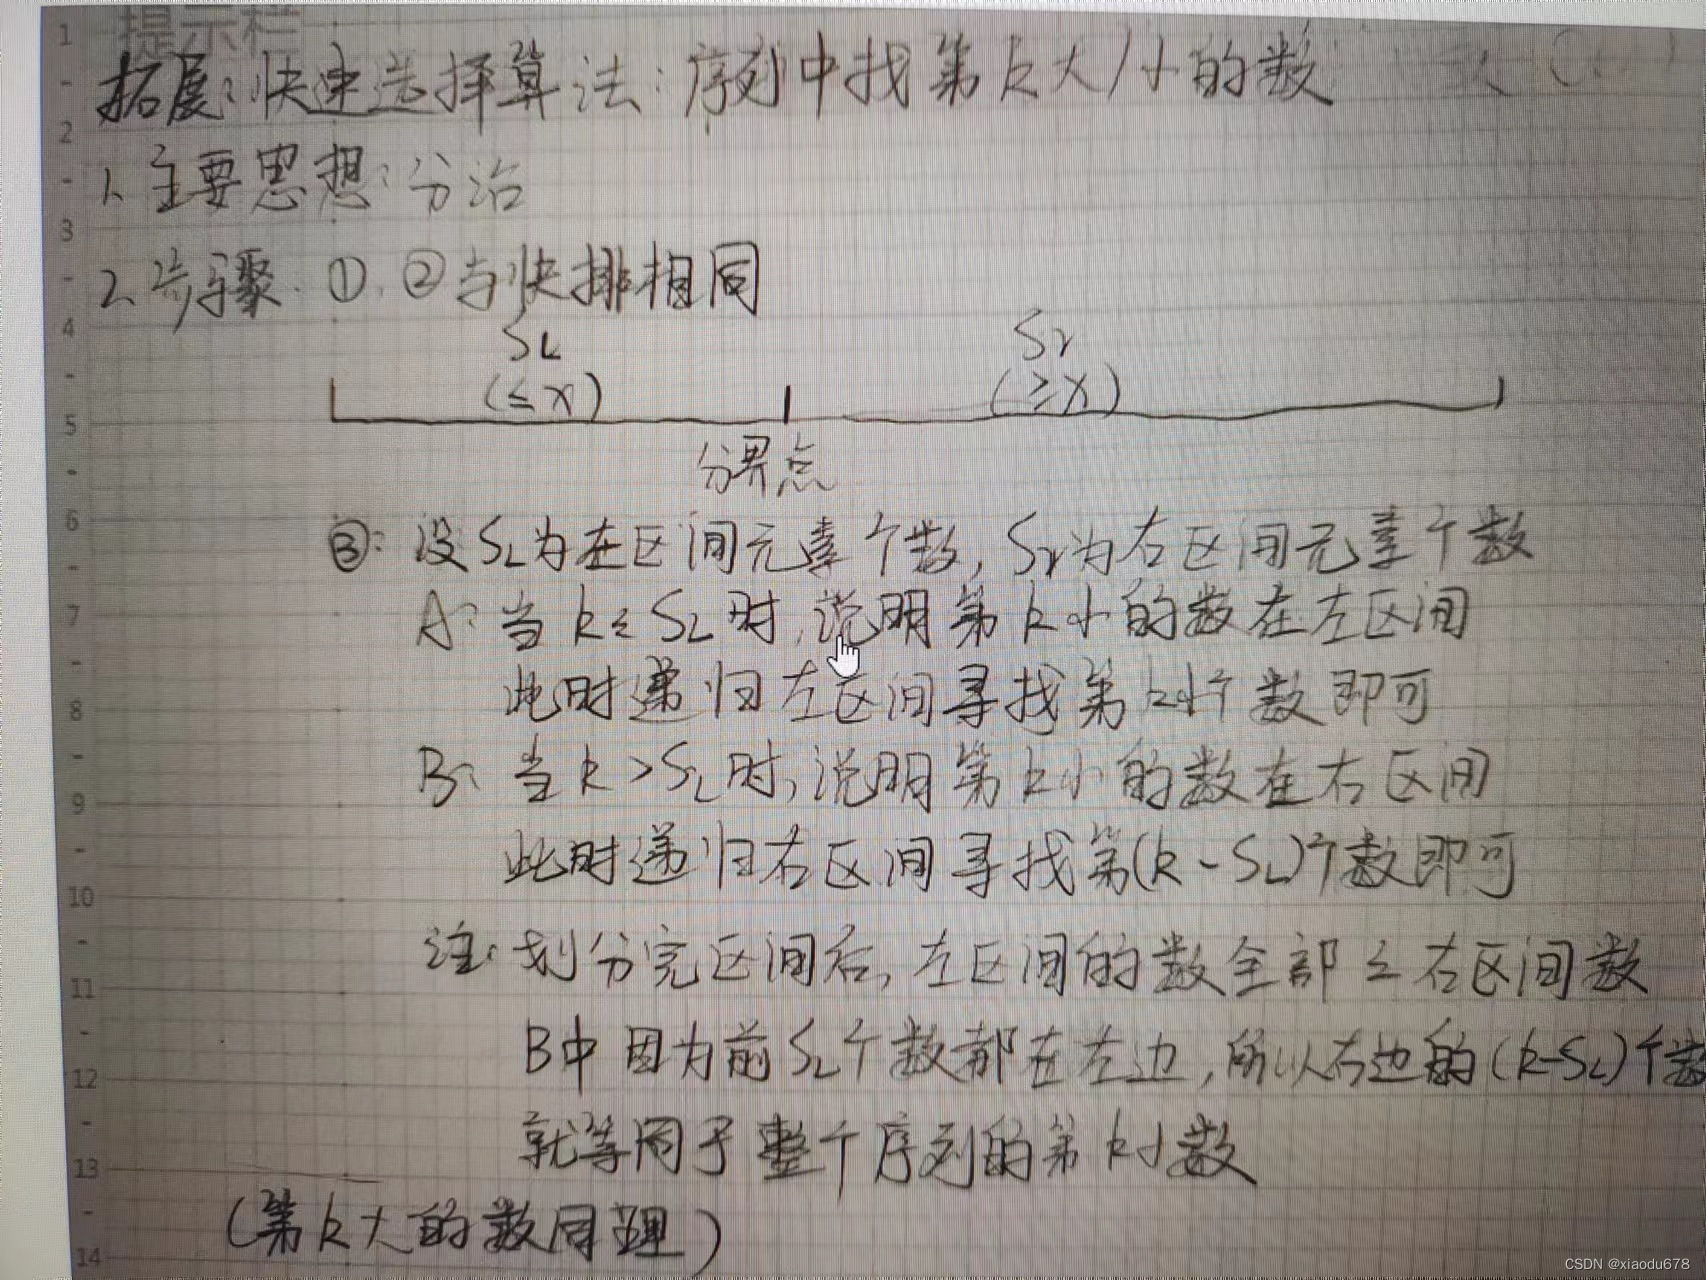 提示栏
拓展:快速选择算法:序列中找第k大/小的数
1、主要思想:分治
2、步骤:①、②与快排相同
SL Sr
(≤x) (≥x)
分界点
③:设SL为左区间元素个数,Sr为右区间元素个数
A:当k≤SL时,说明第k小的数在左区间
此时递归左区间寻找第k小个数即可
B:当k>SL时,说明第k小的数在右区间
此时递归右区间寻找第(k-SL)个数即可
注:划分完区间后,左区间的数全部≤右区间数
B中因为前SL个数都在左边,所以右边的(k-SL)个数
就等同于整个序列的第k小数
(第k大的数同理)
1
2
3
4
5
6
7
8
9
10
11
12
13
14
CSDN @xiaodu678